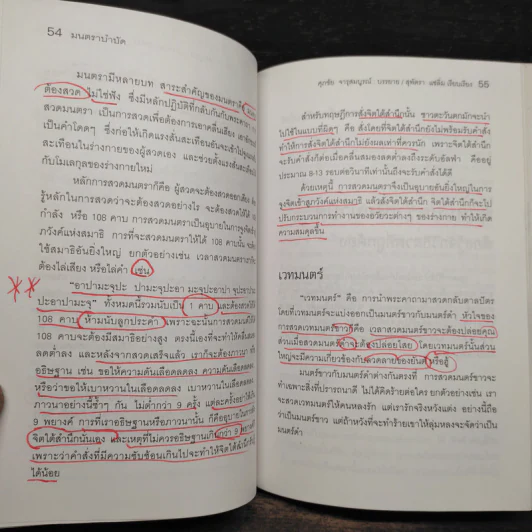 54 มนตราบำบัด
มนตรามีหลายบท สาระสำคัญของมนตราคือ
ต้องสวด ไม่ใช่ฟัง ซึ่งมีหลักปฏิบัติที่กลับกันกับพระคาถา
สวดมนตรา เป็นการสวดเพื่อต้องการเอาคลื่นเสียง
เป็นคำโดดๆ ซึ่งก่อให้เกิดแรงสั่นสะเทือนอันจะเข้าไป
สะเทือนในร่างกายของผู้สวดเอง และช่วยตั้งแรงสั่นสะเทือน
กับโมเลกุลของร่างกายใหม่
หลักการสวดมนตราก็คือ ผู้สวดจะต้องสวดออกเสียง
รู้หลักในการสวดว่าจะต้องสวดอย่างไร จะต้องสวดให้ได้
กำลัง หรือ 108 คาบ การสวดมนตราเป็นอุบายในการจูงจิต
ภวังค์แห่งสมาธิ การที่จะสวดมนตราให้ได้ 108 คาบนั้น
ใช้สมาธิอันยิ่งใหญ่ ยกตัวอย่างเช่น เวลาสวดมนตรา
ต้องไล่เสียง หรือไล่คำ เช่น
"อาปามะจุปะ ปามะจุปะอา มะจุปะอาปา จุปะอาปามะ
ปะอาปามะจุ" ทั้งหมดนี้รวมนับเป็น 1 คาบ และต้องสวดให้ได้
108 คาบ ห้ามนับลูกประคำ เพราะฉะนั้นการสวดมนตราให้ได้
108 คาบจะต้องมีสมาธิอย่างสูง ตรงนี้เองที่จะทำให้คลื่น
ลดต่ำลง และหลังจากสวดเสร็จแล้ว เราก็จะต้องภาวนา
อธิษฐาน เช่น ขอให้ความดันเลือดลดลง ความดันเลือดลดลง
หรือว่าขอให้เบาหวานในเลือดลดลง เบาหวานในเลือดลดลง
ภาวนาอย่างนี้ซ้ำๆ กัน ไม่ต่ำกว่า 9 ครั้ง แต่ละครั้งอย่าให้เกิน
9 พยางค์ การที่เราอธิษฐานหรือภาวนานั้น ก็คืออุบายในการสั่ง
จิตใต้สำนึกนั่นเอง และเหตุที่ไม่ควรอธิษฐานเกินกว่า 9 พยางค์
เพราะว่าคำสั่งที่มีความซับซ้อนเกินไปจะทำให้จิตใต้สำนึกรับ
ได้น้อย
ศุภชัย จารุสมบูรณ์ บรรยาย / สุพัตรา แซ่ลิ่ม เรียบเรียง 55
สำหรับทฤษฎีการสั่งจิตใต้สำนึกนั้น ชาวตะวันตกมักจะนำ
ไปใช้ในแบบที่ผิดๆ คือ สั่งโดยที่จิตใต้สำนึกยังไม่พร้อมรับคำสั่ง
ทำให้การสั่งจิตใต้สำนึกไม่ยังผลเท่าที่ควรนัก เพราะจิตใต้สำนึก
จะรับคำสั่งก็ต่อเมื่อคลื่นสมองลดต่ำลงถึงระดับอัลฟา คืออยู่
ประมาณ 8-13 รอบต่อวินาทีเท่านั้นถึงจะรับคำสั่งได้ดี
ด้วยเหตุนี้ การสวดมนตราจึงเป็นอุบายอันยิ่งใหญ่ในการ
จูงจิตเข้าสู่ภวังค์แห่งสมาธิ แล้วสั่งจิตใต้สำนึก จิตใต้สำนึกก็จะไป
ปรับกระบวนการทำงานของอวัยวะต่างๆ ของร่างกาย ทำให้เกิด
ความสมดุลขึ้น
เวทมนตร์
"เวทมนตร์" คือ การนำพระคาถามาสวดกลับตาลปัตร
โดยที่เวทมนตร์จะแบ่งออกเป็นเวทมนตร์ขาวและมนตร์ดำ หัวใจของ
การสวดเวทมนตร์ขาวก็คือ เวลาสวดมนตร์ขาวจะต้องปล่อยคุณ
ส่วนเมื่อสวดมนตร์ดำจะต้องปล่อยโดย โดยเวทมนตร์นั้นส่วน
ใหญ่จะมีความเกี่ยวข้องกับลวดลายของยันต์ หรือสู้
มนตร์ขาวกับมนตร์ดำต่างกันตรงที่ การสวดมนตร์ขาวจะ
ทำเฉพาะสิ่งที่ปรารถนาดี ไม่ได้คิดร้ายต่อใคร ยกตัวอย่างเช่น เรา
จะสวดเวทมนตร์ให้คนหลงรัก แต่เรารักจริงหวังแต่ง อย่างนี้ถือ
ว่าเป็นมนตร์ขาว แต่ถ้าหวังที่จะทำร้ายเขาให้ลุ่มหลงจะจัดว่าเป็น
มนตร์ดำ